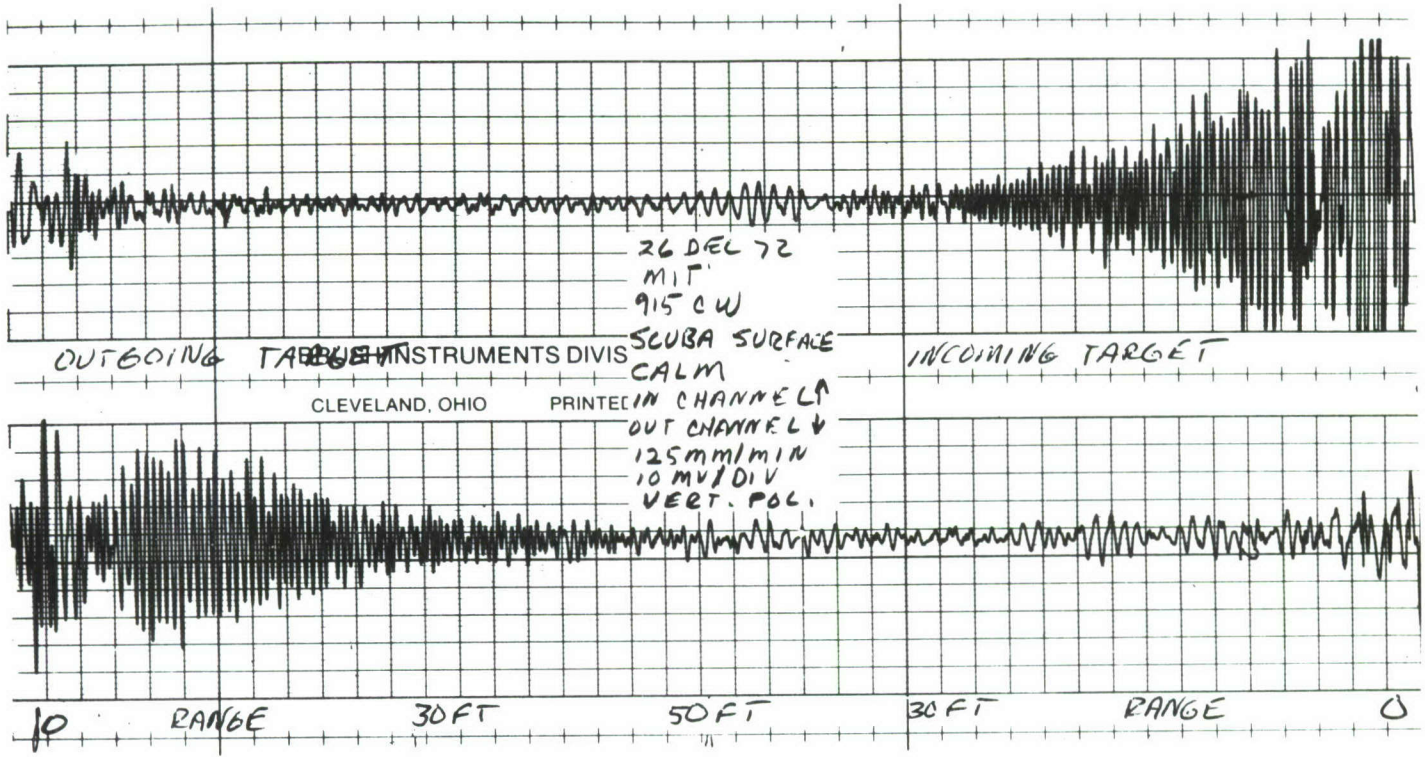 26 DEC 72
MIT
915 CW
SCUBA SURFACE
CALM
IN CHANNEL ↑
OUT CHANNEL ↓
125mm/MIN
10 MV/DIV
VERT. POL.
OUTGOING TARGET INSTRUMENTS DIVIS
INCOMING TARGET
CLEVELAND, OHIO PRINTED
0 RANGE 30FT 50FT 30FT RANGE 0